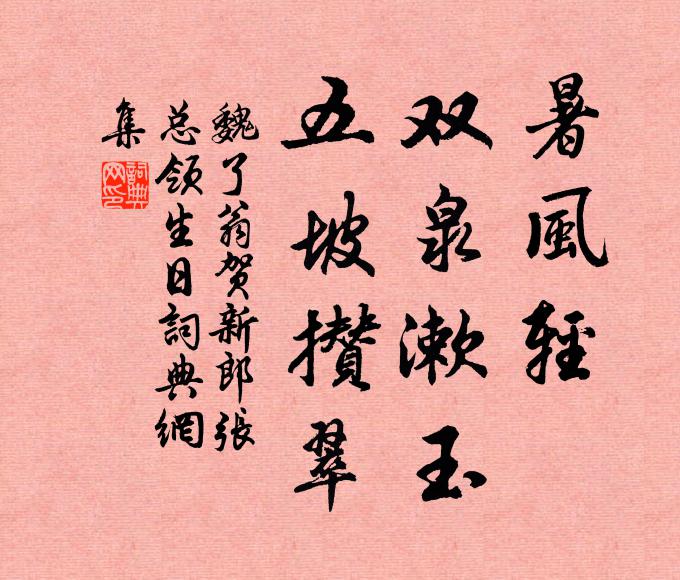 暑風輕
双泉漱玉
五坡攢翠
魏了翁贺新郎張
总领生日詞典網
集
詞典網印